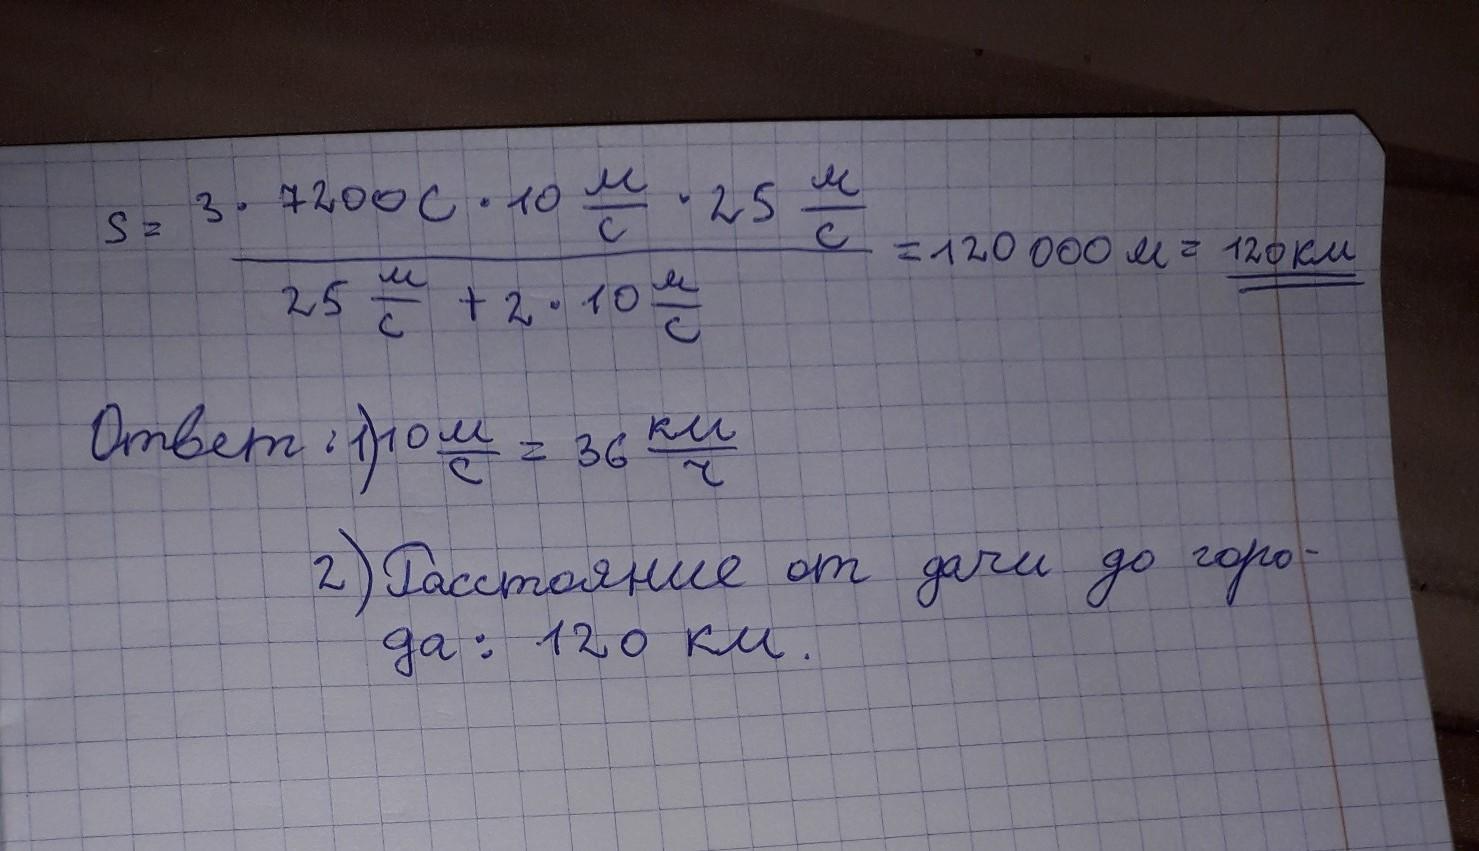 S = (3 · 7200 с · 10 м/с · 25 м/с) / (25 м/с + 2 · 10 м/с) = 120 000 м = 120 км
Ответ: 1) 10 м/с = 36 км/ч
2) Расстояние от дачи до горо-
да: 120 км.